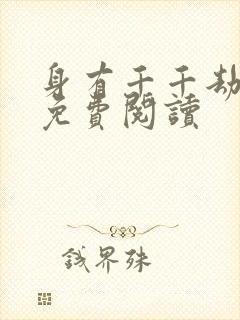 身有千千劫
免費閱讀
錢界殊